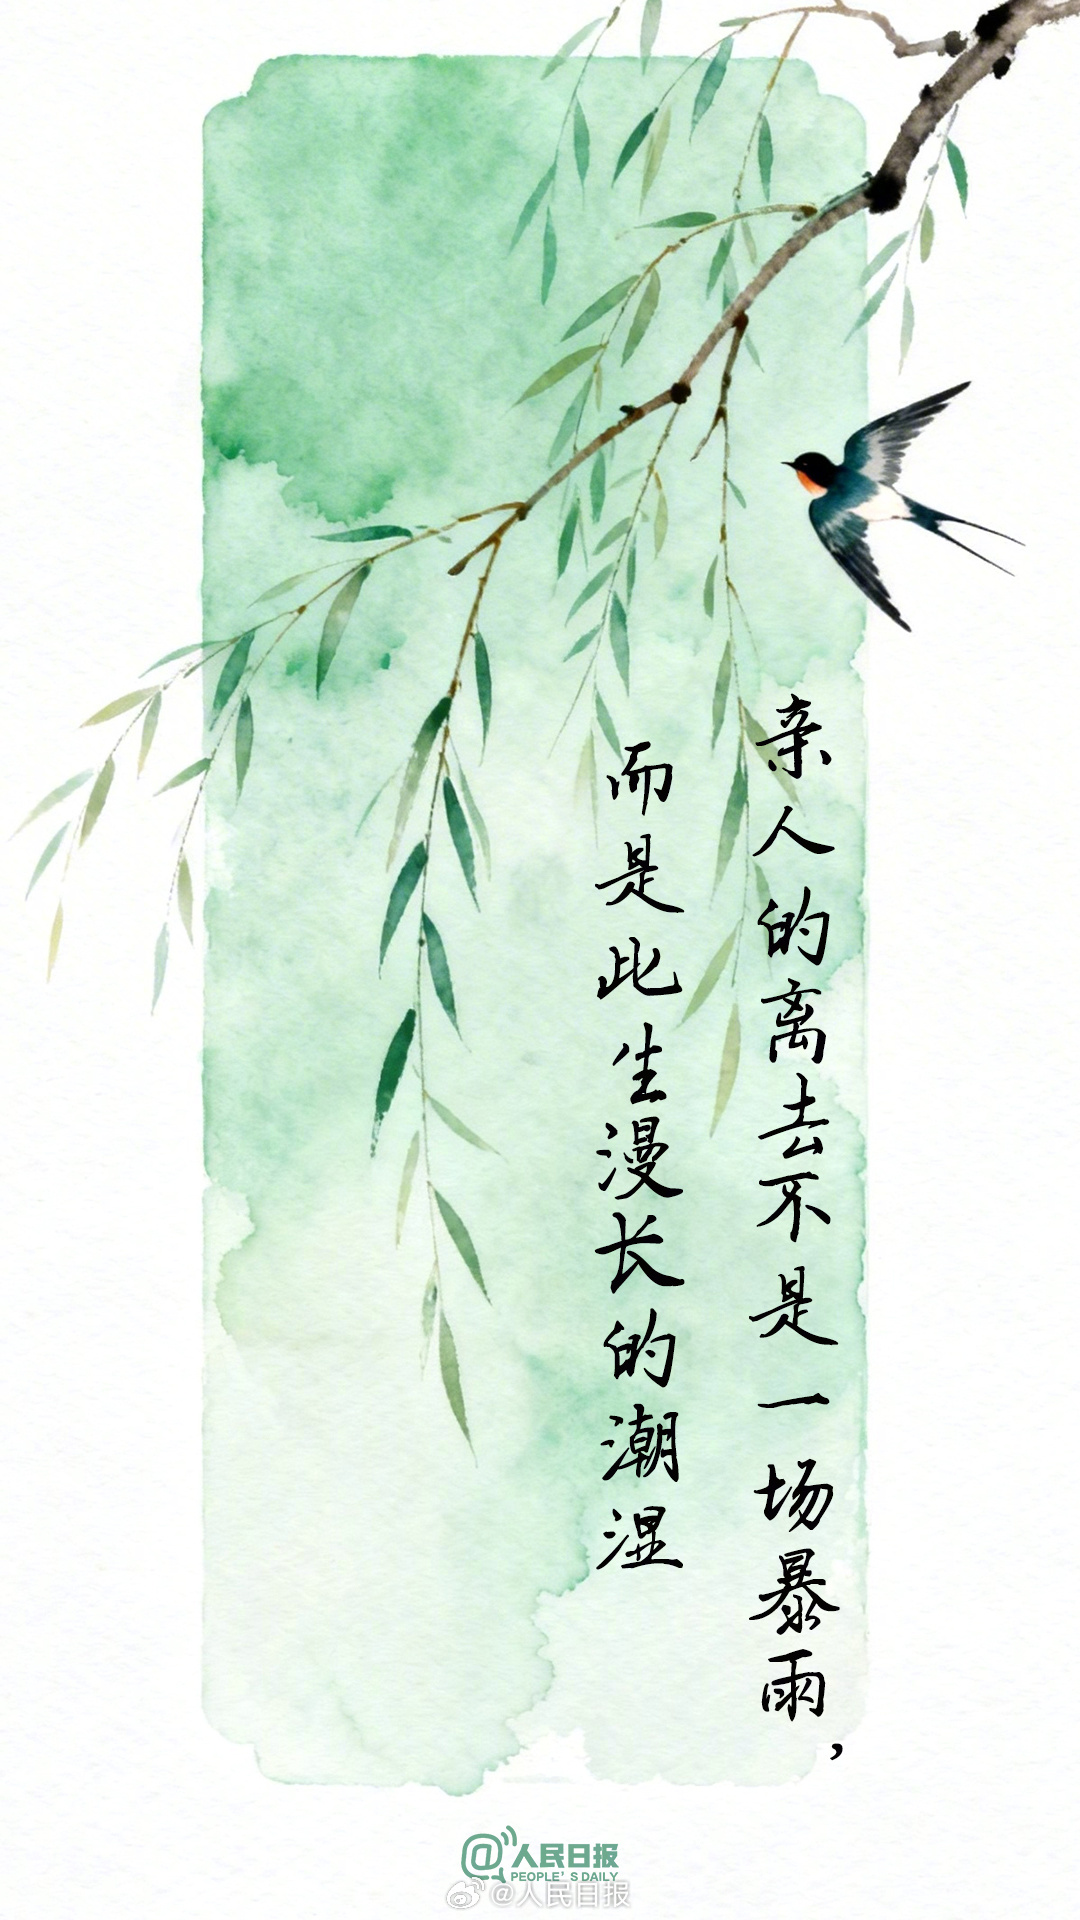 亲人的离去不是一场暴雨，
而是此生漫长的潮湿
@人民日报
PEOPLE'S DAILY
@人民日报